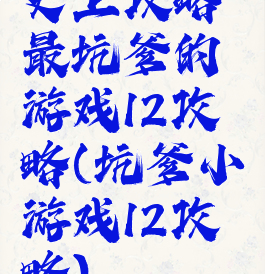 史上攻略
最坑爹的
游戏12攻
略(坑爹小
游戏12攻
略)